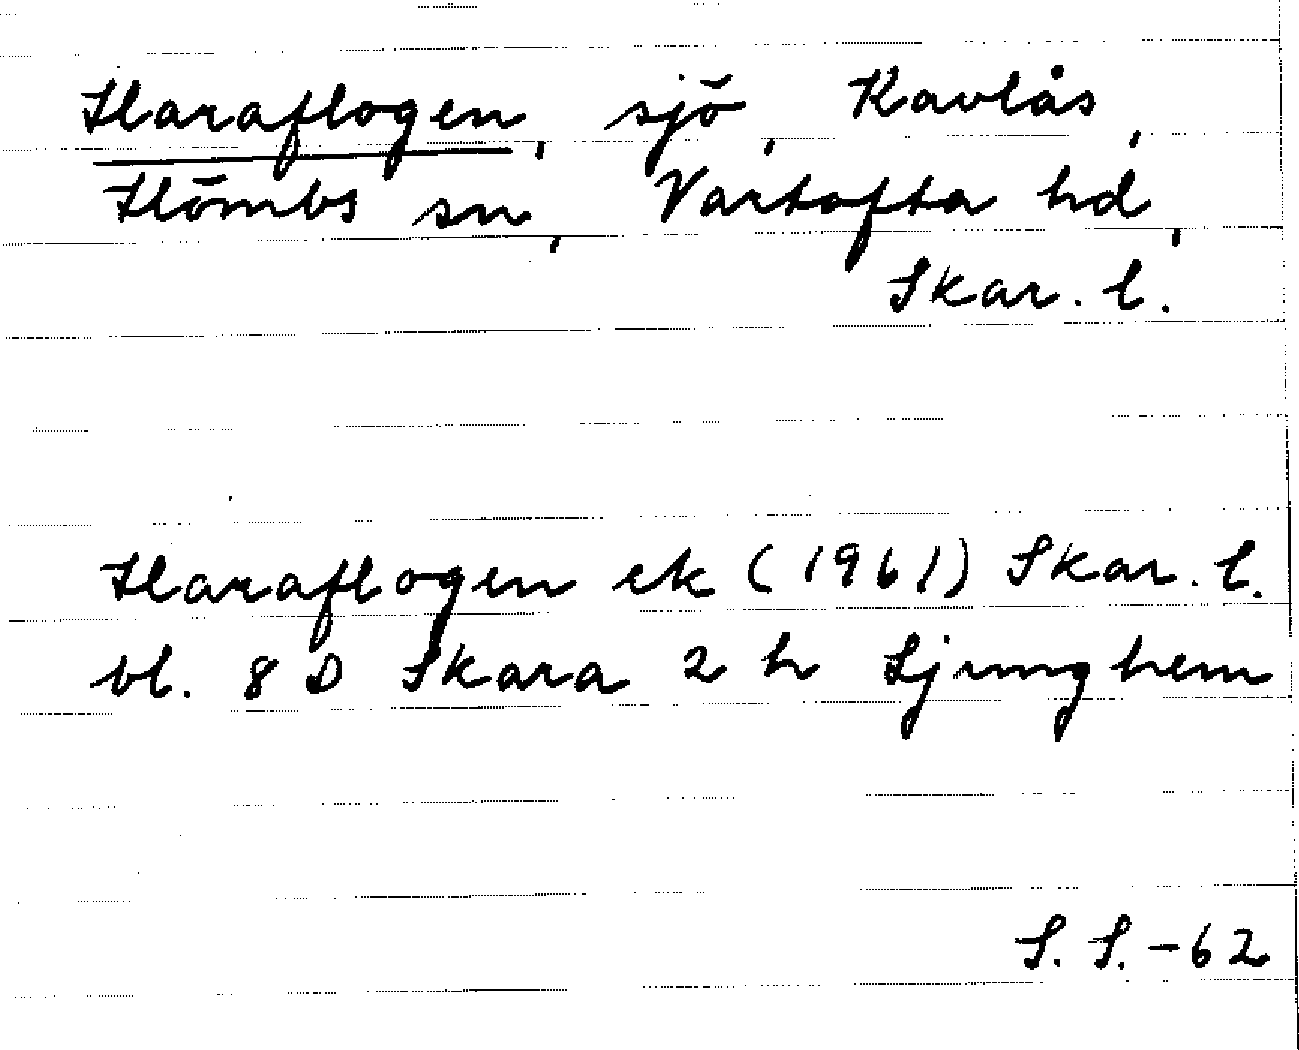 Haraflogen, sjö, Kavlås,
Hömbs sn, Vartofta hd,
Skar. l.
Haraflogen ek (1961) Skar. l.
bl. 8 D Skara 2 h Ljunghem
S. S. - 62